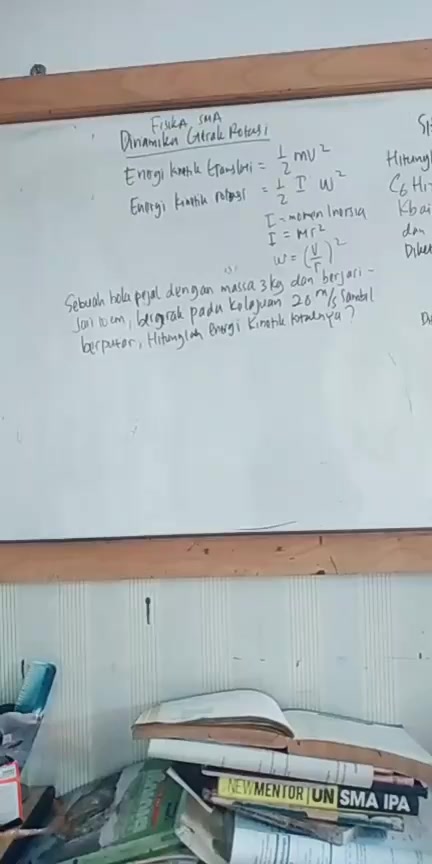 Fisika SMA
Dinamika Gerak Rotasi
Energi kinetik translasi = 1/2 mv²
Energi kinetik rotasi = 1/2 I W²
I = momen Inersia
I = Mr²
W = (v/r)²
Sebuah bola pejal dengan massa 3 kg dan berjari-
jari 10 cm, bergerak pada kelajuan 20 m/s sambil
berputar, Hitunglah energi kinetik totalnya?
Hitung
C6H1
Kb air
dan
Dike
NEW MENTOR UN SMA IPA